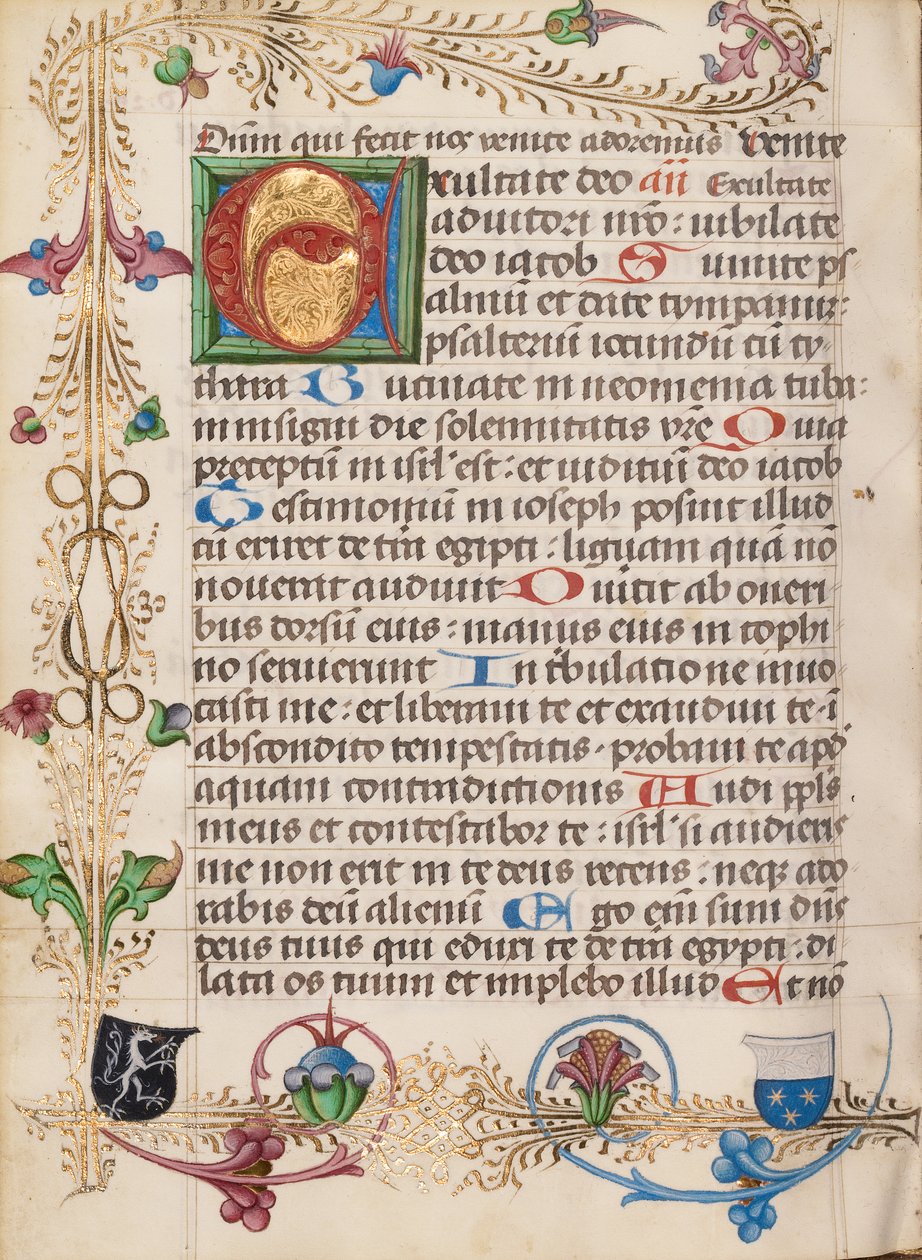 Dnm̄ qui fecit nos venite adoremus Venite
Exultate deo añ Exultate
adiutori nr̄o : iubilate
deo iacob Sumite ps
almū et date tympanum :
psalteriū iocundū cū cy
thara Bucinate in neomenia tuba :
in insigni die solennitatis vr̄e Quia
preceptū in isrl' est : et iuditiū deo iacob
Testimoniū in ioseph posuit illud
cū exiret de tr̄a egipti : liguam quā nō
nouerat audiuit Diuitit ab oneri
bus dorsū eius : manus eius in cophi
no seruierunt In tͥbulatione inuo
casti me : et liberaui te et exaudiui te ī
abscondito tempestatis · probaui te apd'
aquam contradictionis Audi ppl's
meus et contestabor te : isrl' si audieris
me non erit in te deus recens : neqꝫ ado
rabis deū alienū Ego em̄ sum dn̄s
deus tuus qui eduxi te de tr̄a egypti : di
lata os tuum et implebo illud Et nō